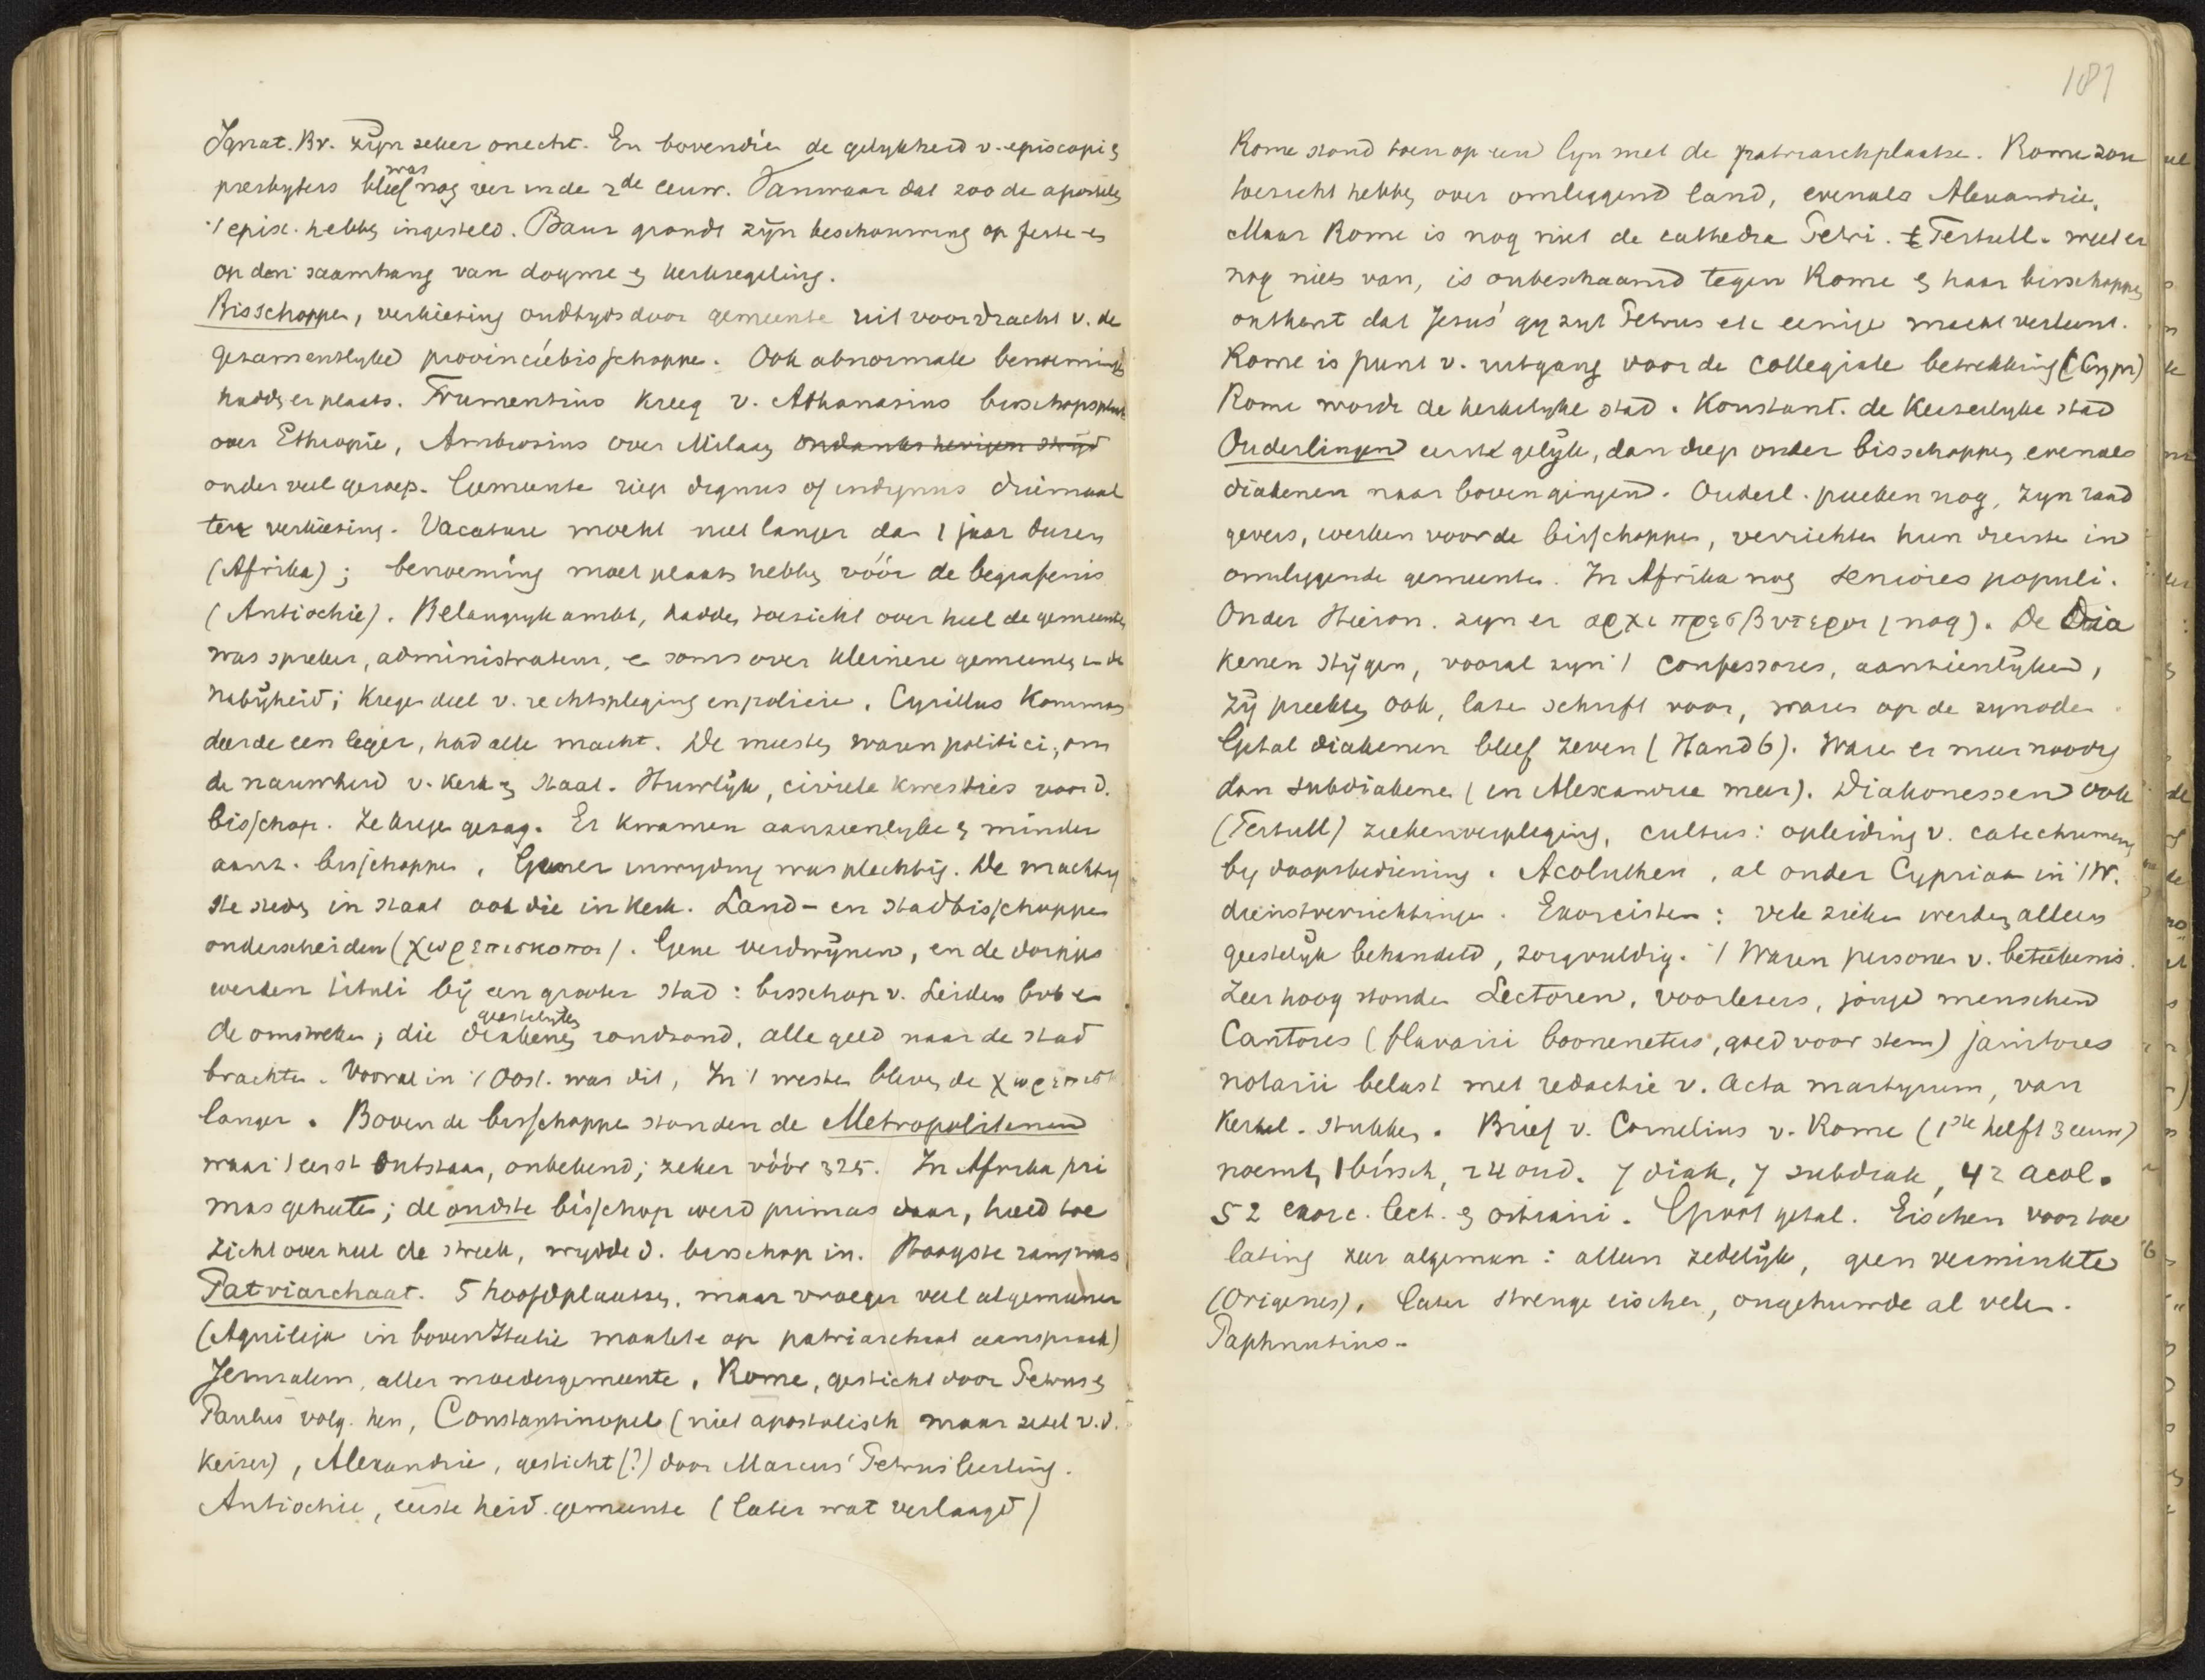 Ignat. Br. zijn zeker onecht. En bovendien de gelykheid v. episcopi en
was
presbyters bleef nog ver in de 2de eeuw. Vanwaar dat zoo de apostelen
't episc. hebben ingesteld. Baur grondt zijn beschouwing op feste en
op den saamhang van dogme en kerkregeling.
Bisschoppen, verkiezing oudtyds door gemeente uit voordracht v. de
gezamentlyke provinciebisschoppen. Ook abnormale benoeming
hadden er plaats. Frumentius kreeg v. Athanasius bisschopsplaats
over Ethiopie, Ambrosius over Milaan ondanks hevigen strijd
onder veel geroep. Gemeente riep dignus of indignus driemaal
ter verkiezing. Vacature mocht niet langer dan 1 jaar duren
(Afrika); benoeming moet plaats hebben vóór de begrafenis
(Antiochie). Belangryk ambt, hadden toezicht over heel de gemeente,
was spreker, administrateur, en soms over kleinere gemeenten in de
nabijheid; kregen deel v. rechtspleging en policie. Cyrillus komman
deerde een leger, had alle macht. De meesten waren politici, om
de nauwheid v. kerk en staat. Huwlijk, civiele kwesties voor d.
bisschop. Ze kregen gezag. Er kwamen aanzienlyke en minder
aanz. bisschoppen. Gener inwyding was plechtig. De machtig
ste steden in staat ook die in kerk. Land- en stadbisschoppen
onderscheiden (χωρεπισκοποι). Gene verdwijnen, en de dorpjes
werden tituli bij een groote stad: bisschop v. Leiden bvb en
geestelyken
de omstreken; die diakenen rondzond, alle geld naar de stad
brachten. Vooral in 't Oost. was dit, In 't westen bleven de χωρεπισκ
langer. Boven de bisschoppen stonden de Metropolitanen
waar 't eerst ontstaan, onbekend; zeker vóór 325. In Afrika pri
mas geheeten; de oudste bisschop werd primas daar, hield toe
zicht over heel de streek, wydde d. bisschop in. Hoogste rang was
Patriarchaat. 5 hoofdplaatsen, maar vroeger veel algemeener
(Aquileja in boven Italie maakte op patriarchaat aanspraak)
Jeruzalem, aller moedergemeente, Rome, gesticht door Petrus en
Paulus volg. hen, Constantinopel (niet apostolisch maar zetel v.d.
keizer), Alexandrie, gesticht (?) door Marcus Petrus' leerling.
Antiochie, eerste heid. gemeente (later wat verlaagd)
181
Rome stond toen op een lyn met de patriarchplaatse. Rome zou
toezicht hebben over omliggend land, evenals Alexandrie.
Maar Rome is nog niet de cathedra Petri. Tertull. weet er
nog niets van, is onbeschaamd tegen Rome en haar bisschoppen
ontkent dat Jezus' gy zyt Petrus etc eenige macht verleent.
Rome is punt v. uitgang voor de collegiale betrekking (Cypr)
Rome wordt de kerkelyke stad. Konstant. de keizerlyke stad
Ouderlingen eerst gelijk, dan diep onder bisschoppen, evenals
diakenen naar boven gingen. Ouderl. preeken nog, zyn raad
gevers, werken voor de bisschoppen, verrichten hun dienst in
omliggende gemeenten. In Afrika nog seniores populi.
Onder Hieron. zyn er αρχιπρεσβυτεροι (nog). De Dia
kenen stijgen, vooral zyn 't confessores, aanzienlijken,
zij preekten ook, lazen schrift voor, waren op de synoden.
Getal diakenen bleef zeven (Hand 6). Waren er meer noodig
dan subdiakenen (in Alexandrie meer). Diakonessen ook
(Tertull) ziekenverpleging, cultus: opleiding v. catechumenen
by doopsbediening. Acoluthen, al onder Cyprian in 't W.
dienstverrichtingen. Exorcisten: vele zieken werden alleen
geestelyk behandeld, zorgvuldig. 't Waren personen v. beteekenis.
Zeer hoog stonden Lectoren, voorlezers, jonge menschen
Cantores (flavarii boonenetus, goed voor stem) janitores
notarii belast met redactie v. acta martyrum, van
kerkel. stukken. Brief v. Cornelius v. Rome (1ste helft 3 eeuw)
noemt 1 bissch, 24 oud. 7 diak, 7 subdiak, 42 acol.
52 exorc. lect. en ostiarii. Groot getal. Eischen voor toe
lating zeer algemeen: alleen zedelijk, geen verminkte
(Origenes). Later strenge eischen, ongehuwde al velen.
Paphnutius.